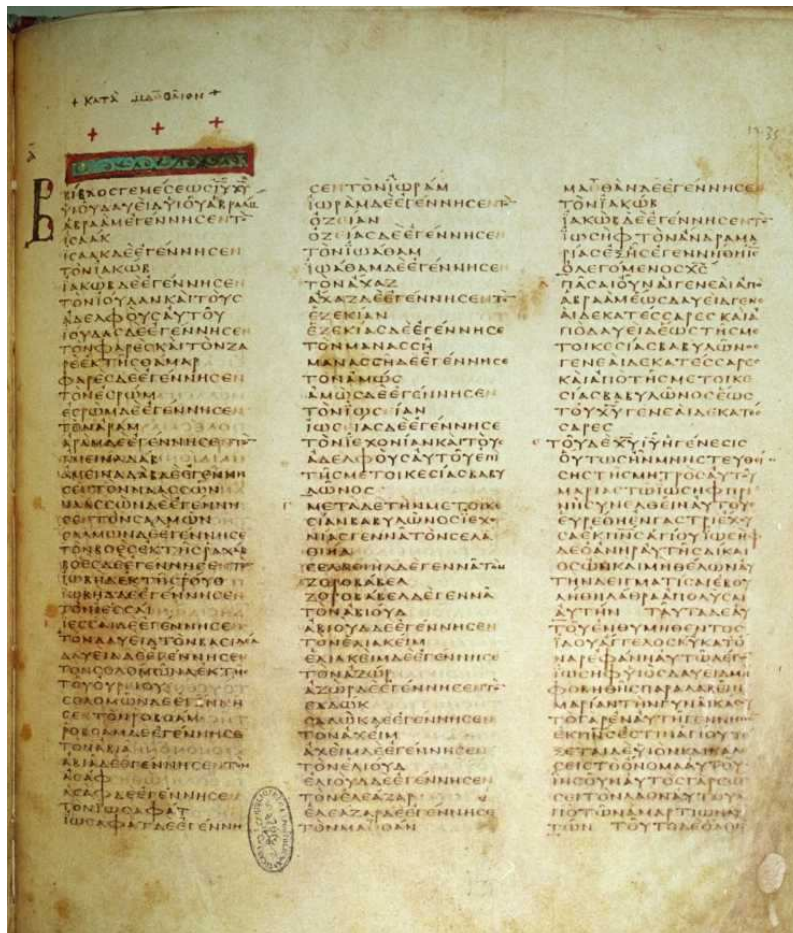 + ΚΑΤΑ ΜΑΘΘΑΙΟΝ +
ΒΙΒΛΟϹΓΕΝΕϹΕΩϹΙΥΧΥ
ΥΙΟΥΔΑΥΕΙΔΥΙΟΥΑΒΡΑΑΜ
ΑΒΡΑΑΜΕΓΕΝΝΗϹΕΝΤΟ
ΙϹΑΑΚ
ΙϹΑΑΚΔΕΕΓΕΝΝΗϹΕΝ
ΤΟΝΙΑΚΩΒ
ΙΑΚΩΒΔΕΕΓΕΝΝΗϹΕΝ
ΤΟΝΙΟΥΔΑΝΚΑΙΤΟΥϹ
ΑΔΕΛΦΟΥϹΑΥΤΟΥ
ΙΟΥΔΑϹΔΕΕΓΕΝΝΗϹΕΝ
ΤΟΝΦΑΡΕϹΚΑΙΤΟΝΖΑ
ΡΕΕΚΤΗϹΘΑΜΑΡ
ΦΑΡΕϹΔΕΕΓΕΝΝΗϹΕΝ
ΤΟΝΕϹΡΩΜ
ΕϹΡΩΜΔΕΕΓΕΝΝΗϹΕΝ
ΤΟΝΑΡΑΜ
ΑΡΑΜΔΕΕΓΕΝΝΗϹΕΝΤΟ
ΑΜΕΙΝΑΔΑΒ
ΑΜΕΙΝΑΔΑΒΔΕΕΓΕΝΝΗ
ϹΕΝΤΟΝΝΑΑϹϹΩΝ
ΝΑΑϹϹΩΝΔΕΕΓΕΝΝΗ
ϹΕΝΤΟΝϹΑΛΜΩΝ
ϹΑΛΜΩΝΔΕΕΓΕΝΝΗϹΕ
ΤΟΝΒΟΕϹΕΚΤΗϹΡΑΧΑΒ
ΒΟΕϹΔΕΕΓΕΝΝΗϹΕΝΤΟ
ΙΩΒΗΔΕΚΤΗϹΡΟΥΘ
ΙΩΒΗΔΔΕΕΓΕΝΝΗϹΕΝ
ΤΟΝΙΕϹϹΑΙ
ΙΕϹϹΑΙΔΕΕΓΕΝΝΗϹΕΝ
ΤΟΝΔΑΥΕΙΔΤΟΝΒΑϹΙΛΕΑ
ΔΑΥΕΙΔΔΕΕΓΕΝΝΗϹΕΝ
ΤΟΝϹΟΛΟΜΩΝΑΕΚΤΗϹ
ΤΟΥΟΥΡΙΟΥ
ϹΟΛΟΜΩΝΔΕΕΓΕΝΝΗ
ϹΕΝΤΟΝΡΟΒΟΑΜ
ΡΟΒΟΑΜΔΕΕΓΕΝΝΗϹΕ
ΤΟΝΑΒΙΑ
ΑΒΙΑΔΕΕΓΕΝΝΗϹΕΝΤΟΝ
ΑϹΑΦ
ΑϹΑΦΔΕΕΓΕΝΝΗϹΕΝ
ΤΟΝΙΩϹΑΦΑΤ
ΙΩϹΑΦΑΤΔΕΕΓΕΝΝΗ
ϹΕΝΤΟΝΙΩΡΑΜ
ΙΩΡΑΜΔΕΕΓΕΝΝΗϹΕΝΤΟ
ΟΖΕΙΑΝ
ΟΖΕΙΑϹΔΕΕΓΕΝΝΗϹΕΝ
ΤΟΝΙΩΑΘΑΜ
ΙΩΑΘΑΜΔΕΕΓΕΝΝΗϹΕ
ΤΟΝΑΧΑΖ
ΑΧΑΖΔΕΕΓΕΝΝΗϹΕΝΤΟ
ΕΖΕΚΙΑΝ
ΕΖΕΚΙΑϹΔΕΕΓΕΝΝΗϹΕ
ΤΟΝΜΑΝΑϹϹΗ
ΜΑΝΑϹϹΗΔΕΕΓΕΝΝΗϹΕ
ΤΟΝΑΜΩϹ
ΑΜΩϹΔΕΕΓΕΝΝΗϹΕΝ
ΤΟΝΙΩϹΕΙΑΝ
ΙΩϹΕΙΑϹΔΕΕΓΕΝΝΗϹΕ
ΤΟΝΙΕΧΟΝΙΑΝΚΑΙΤΟΥϹ
ΑΔΕΛΦΟΥϹΑΥΤΟΥΕΠΙ
ΤΗϹΜΕΤΟΙΚΕϹΙΑϹΒΑΒΥ
ΛΩΝΟϹ
ΜΕΤΑΔΕΤΗΝΜΕΤΟΙΚΕ
ϹΙΑΝΒΑΒΥΛΩΝΟϹΙΕΧΟ
ΝΙΑϹΓΕΝΝΑΤΟΝϹΕΛΑ
ΘΙΗΛ
ϹΕΛΑΘΙΗΛΔΕΓΕΝΝΑΤΟΝ
ΖΟΡΟΒΑΒΕΛ
ΖΟΡΟΒΑΒΕΛΔΕΓΕΝΝΑ
ΤΟΝΑΒΙΟΥΔ
ΑΒΙΟΥΔΔΕΕΓΕΝΝΗϹΕΝ
ΤΟΝΕΛΙΑΚΕΙΜ
ΕΛΙΑΚΕΙΜΔΕΕΓΕΝΝΗϹΕ
ΤΟΝΑΖΩΡ
ΑΖΩΡΔΕΕΓΕΝΝΗϹΕΝΤΟ
ϹΑΔΩΚ
ϹΑΔΩΚΔΕΕΓΕΝΝΗϹΕΝ
ΤΟΝΑΧΕΙΜ
ΑΧΕΙΜΔΕΕΓΕΝΝΗϹΕΝ
ΤΟΝΕΛΙΟΥΔ
ΕΛΙΟΥΔΔΕΕΓΕΝΝΗϹΕΝ
ΤΟΝΕΛΕΑΖΑΡ
ΕΛΕΑΖΑΡΔΕΕΓΕΝΝΗϹΕ
ΤΟΝΜΑΘΘΑΝ
ΜΑΘΘΑΝΔΕΕΓΕΝΝΗϹΕΝ
ΤΟΝΙΑΚΩΒ
ΙΑΚΩΒΔΕΕΓΕΝΝΗϹΕΝΤΟ
ΙΩϹΗΦΤΟΝΑΝΔΡΑΜΑ
ΡΙΑϹΕΞΗϹΕΓΕΝΝΗΘΗΙϹ
ΟΛΕΓΟΜΕΝΟϹΧϹ
ΠΑϹΑΙΟΥΝΑΙΓΕΝΕΑΙΑΠΟ
ΑΒΡΑΑΜΕΩϹΔΑΥΕΙΔΓΕΝΕ
ΑΙΔΕΚΑΤΕϹϹΑΡΕϹΚΑΙΑ
ΠΟΔΑΥΕΙΔΕΩϹΤΗϹΜΕ
ΤΟΙΚΕϹΙΑϹΒΑΒΥΛΩΝΟϹ
ΓΕΝΕΑΙΔΕΚΑΤΕϹϹΑΡΕϹ
ΚΑΙΑΠΟΤΗϹΜΕΤΟΙΚΕ
ϹΙΑϹΒΑΒΥΛΩΝΟϹΕΩϹ
ΤΟΥΧΥΓΕΝΕΑΙΔΕΚΑΤΕϹ
ϹΑΡΕϹ
ΤΟΥΔΕΧΥΙΥΗΓΕΝΕϹΙϹ
ΟΥΤΩϹΗΝΜΝΗϹΤΕΥΘΕΙ
ϹΗϹΤΗϹΜΗΤΡΟϹΑΥΤΟΥ
ΜΑΡΙΑϹΤΩΙΩϹΗΦΠΡΙ
ΝΗϹΥΝΕΛΘΕΙΝΑΥΤΟΥϹ
ΕΥΡΕΘΗΕΝΓΑϹΤΡΙΕΧΟΥ
ϹΑΕΚΠΝϹΑΓΙΟΥΙΩϹΗΦ
ΔΕΟΑΝΗΡΑΥΤΗϹΔΙΚΑΙ
ΟϹΩΝΚΑΙΜΗΘΕΛΩΝΑΥ
ΤΗΝΔΕΙΓΜΑΤΙϹΑΙΕΒΟΥ
ΛΗΘΗΛΑΘΡΑΑΠΟΛΥϹΑΙ
ΑΥΤΗΝ ΤΑΥΤΑΔΕΑΥ
ΤΟΥΕΝΘΥΜΗΘΕΝΤΟϹ
ΙΔΟΥΑΓΓΕΛΟϹΚΥΚΑΤΟ
ΝΑΡΕΦΑΝΗΑΥΤΩΛΕΓΩ
ΙΩϹΗΦΥΙΟϹΔΑΥΕΙΔΜΗ
ΦΟΒΗΘΗϹΠΑΡΑΛΑΒΕΙΝ
ΜΑΡΙΑΝΤΗΝΓΥΝΑΙΚΑϹΟΥ
ΤΟΓΑΡΕΝΑΥΤΗΓΕΝΝΗΘΕ
ΕΚΠΝϹΕϹΤΙΝΑΓΙΟΥΤΕ
ΞΕΤΑΙΔΕΥΙΟΝΚΑΙΚΑΛΕ
ϹΕΙϹΤΟΟΝΟΜΑΑΥΤΟΥ
ΙΗϹΟΥΝΑΥΤΟϹΓΑΡϹΩ
ϹΕΙΤΟΝΛΑΟΝΑΥΤΟΥΑ
ΠΟΤΩΝΑΜΑΡΤΙΩΝΑΥ
ΤΩΝ ΤΟΥΤΟΔΕΟΛΟΝ